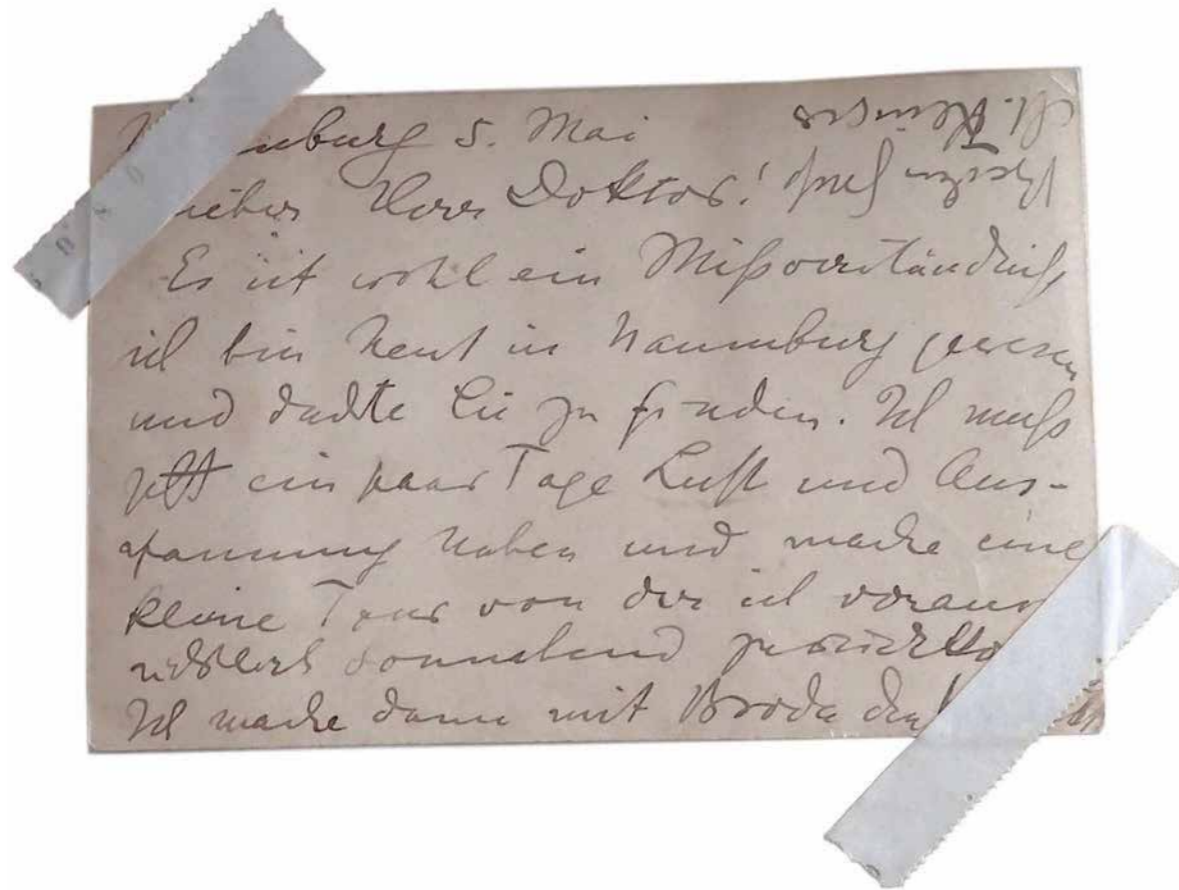 Naumburg 5. Mai
Lieber Herr Doktor!
Es ist wohl ein Mißverständniß
ich bin heut in Naumburg gewesen
und dachte Sie zu finden. Ich muß
jetzt ein paar Tage Luft und Aus-
spannung haben und mache eine
kleine Tour von der ich voraus-
sichtlich Sonnabend zurückko
Ich mache dann mit Brode
Herzen Gruß
M. Klinger